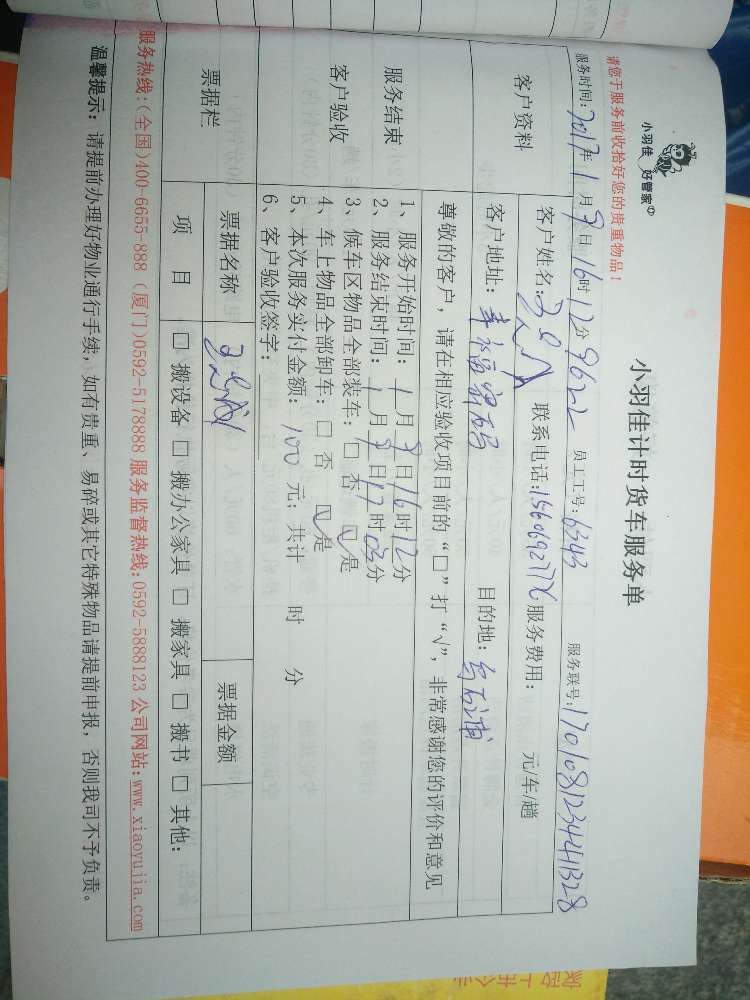 小羽佳 好管家
小羽佳计时货车服务单
请您于服务前收拾好您的贵重物品！
服务时间: 2017年1月9日16时12分 9622 员工工号: 6343 服务联号: 1701081234441328
客户资料
客户姓名: 联系电话: 15606927776 服务费用: 元/车/趟
客户地址: 幸福家码 目的地: 乌石浦
服务结束
客户验收
尊敬的客户，请在相应验收项目前的“□”打“√”，非常感谢您的评价和意见
1、服务开始时间: 1月9日16时12分
2、服务结束时间: 1月9日17时03分
3、候车区物品全部装车: □ 否 ☑ 是
4、车上物品全部卸车: □ 否 ☑ 是
5、本次服务实付金额: 100 元; 共计 时 分
6、客户验收签字:
票据栏
票据名称 票据金额
项 目 □ 搬设备 □ 搬办公家具 □ 搬家具 □ 搬书 □ 其他:
服务热线:(全国)400-6655-888 (厦门)0592-5178888 服务监督热线:0592-5888123 公司网站:www.xiaoyujia.com
温馨提示: 请提前办理好物业通行手续; 如有贵重、易碎或其它特殊物品请提前申报，否则我司不予负责。
家政上市企业